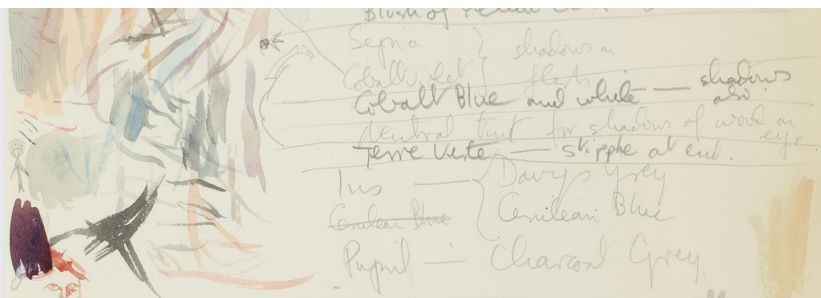 Blush of
Sepia } shadows on
Cobalt Violet } flesh.
Cobalt Blue and white — shadows also.
Neutral tint for shadows of wood on eye.
Terre Verte — stipple at end.
Iris — { Davys Grey
Cerulean Blue { Cerulean Blue
Pupil — Charcoal Grey.